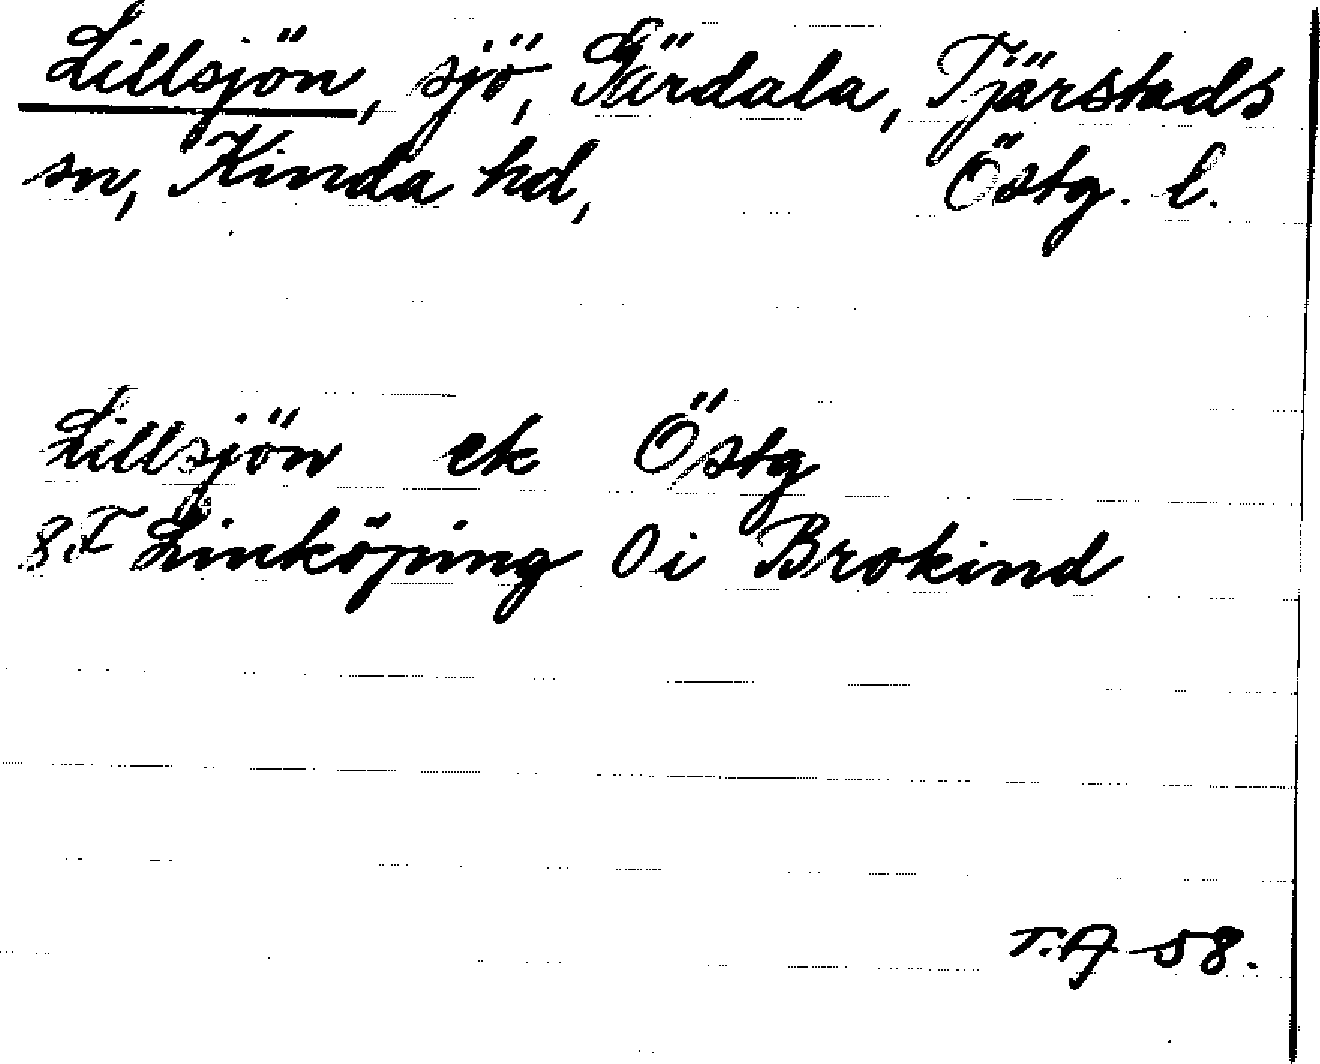 Lillsjön, sjö, Gärdala, Tjärstads
sn, Kinda hd, Östg. l.
Lillsjön ek Östg
8F Linköping Oi Brokind
T.A 58.